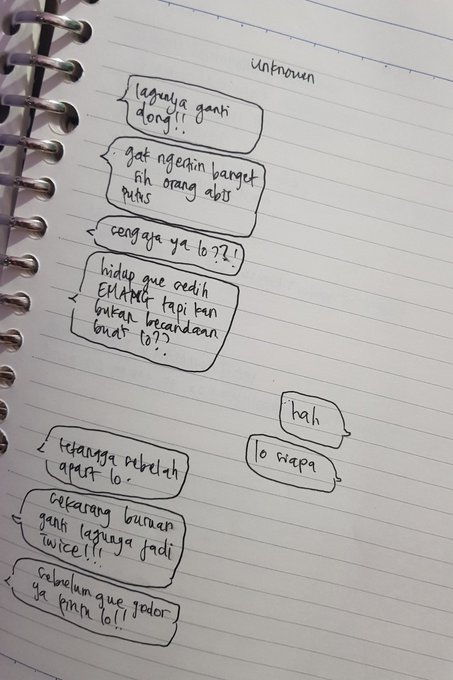 unknown
lagunya ganti
dong!!
gak ngertiin banget
sih orang abis
putus
sengaja ya lo??!
hidup gue sedih
EMANG tapi kan
bukan becandaan
buat lo??
hah
lo siapa
tetangga sebelah
apart lo.
sekarang buruan
ganti lagunya jadi
twice!!!
sebelum gue gedor
ya pintu lo!!